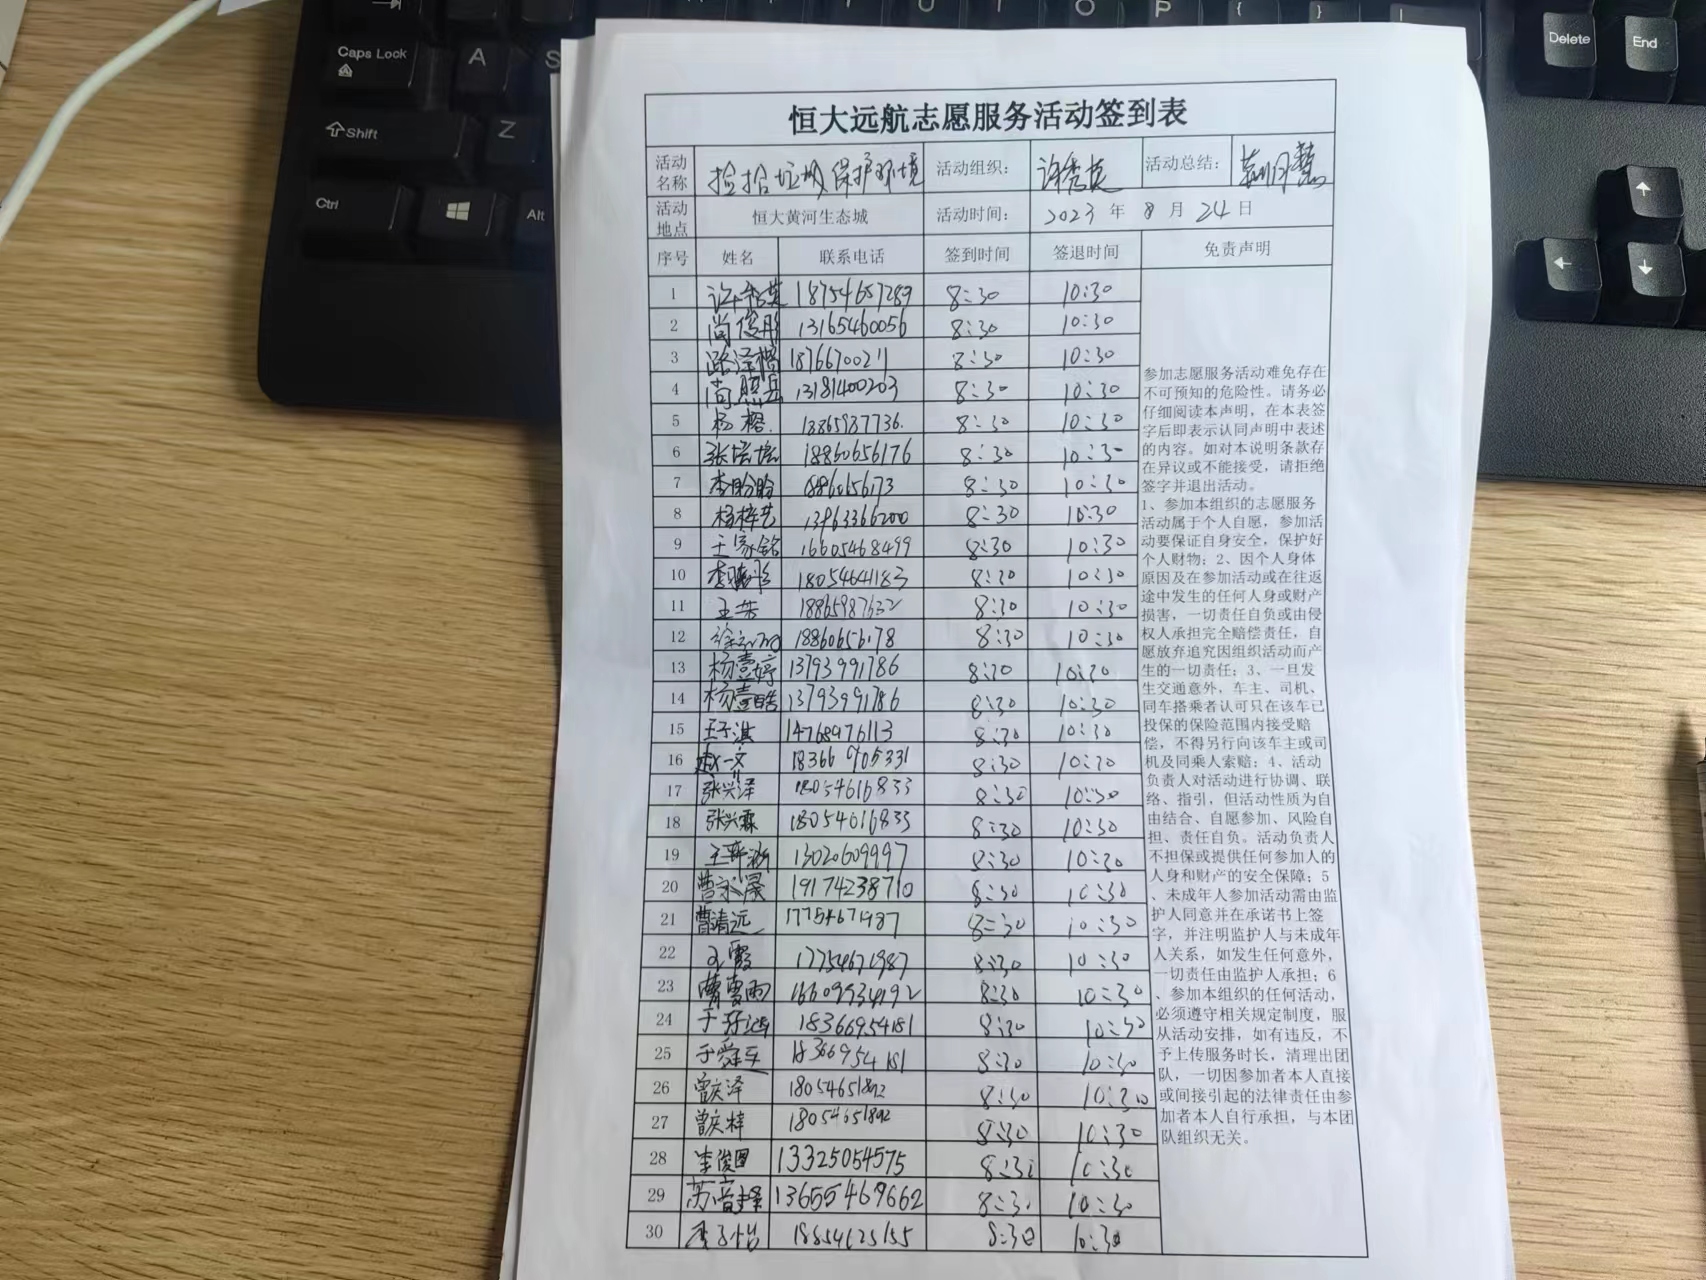 Caps Lock
A
S
O
P
Delete
End
Shift
Z
Ctrl
Alt
恒大远航志愿服务活动签到表
活动名称 捡拾垃圾保护环境 活动组织： 许秀英 活动总结：
活动地点 恒大黄河生态城 活动时间： 2023 年 8 月 24 日
序号 姓名 联系电话 签到时间 签退时间 免责声明
1 许秀英 18754657289 8:30 10:30
2 尚俊彤 13165460056 8:30 10:30
3 路泽楷 1876670021 8:30 10:30
4 尚 13181400203 8:30 10:30
5 杨榕. 13865987736. 8:30 10:30
6 张培培 18860656176 8:30 10:30
7 李盼盼 18860656173 8:30 10:30
8 杨梓艺 13963366200 8:30 10:30
9 王家铭 16605468499 8:30 10:30
10 李 18054641183 8:30 10:30
11 王荣 18865987632 8:30 10:30
12 徐 18860656178 8:30 10:30
13 杨壹婷 13793991786 8:30 10:30
14 杨壹皓 13793991786 8:30 10:30
15 王子淇 14768976113 8:30 10:30
16 赵一文 18366905331 8:30 10:30
17 张兴泽 18054616833 8:30 10:30
18 张兴霖 18054616833 8:30 10:30
19 王 13020609997 8:30 10:30
20 曹 19174238710 8:30 10:30
21 曹清远 17754671987 8:30 10:30
22 王霞 17754671987 8:30 10:30
23 曹雯雨 16609934192 8:30 10:30
24 于 18366954181 8:30 10:30
25 于舜 18366954181 8:30 10:30
26 曾庆泽 18054651892 8:30 10:30
27 曾庆梓 18054651892 8:30 10:30
28 李俊圆 13325054575 8:30 10:30
29 苏 13655469662 8:30 10:30
30 李子怡 18654625155 8:30 10:30
参加志愿服务活动难免存在
不可预知的危险性。请务必
仔细阅读本声明，在本表签
字后即表示认同声明中表述
的内容。如对本说明条款存
在异议或不能接受，请拒绝
签字并退出活动。
1、参加本组织的志愿服务
活动属于个人自愿，参加活
动要保证自身安全，保护好
个人财物；2、因个人身体
原因及在参加活动或在往返
途中发生的任何人身或财产
损害，一切责任自负或由侵
权人承担完全赔偿责任，自
愿放弃追究因组织活动而产
生的一切责任；3、一旦发
生交通意外，车主、司机、
同车搭乘者认可只在该车已
投保的保险范围内接受赔
偿，不得另行向该车主或司
机及同乘人索赔；4、活动
负责人对活动进行协调、联
络、指引，但活动性质为自
由结合、自愿参加、风险自
担、责任自负。活动负责人
不担保或提供任何参加人的
人身和财产的安全保障；5
、未成年人参加活动需由监
护人同意并在承诺书上签
字，并注明监护人与未成年
人关系，如发生任何意外，
一切责任由监护人承担；6
、参加本组织的任何活动，
必须遵守相关规定制度，服
从活动安排，如有违反，不
予上传服务时长，清理出团
队，一切因参加者本人直接
或间接引起的法律责任由参
加者本人自行承担，与本团
队组织无关。